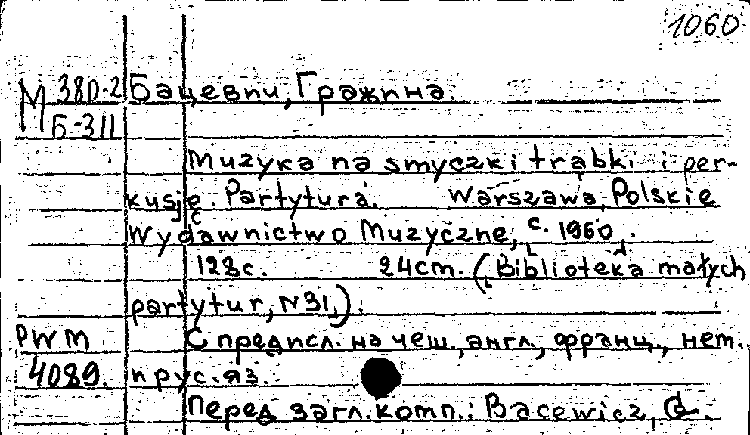 1060
М 380-2 Бацевич, Гражина.
Б-311
Muzyka na smyczki trąbki i per-
kusję. Partytura. Warszawa, Polskie
Wydawnictwo Muzyczne, c. 1960.
123 с. 24cm. (Biblioteka małych
partytur, N31,).
PWM С предисл. на чеш., англ., франц., нем.
4089. и рус. яз.
Перед загл. комп.: Bacewicz, G.